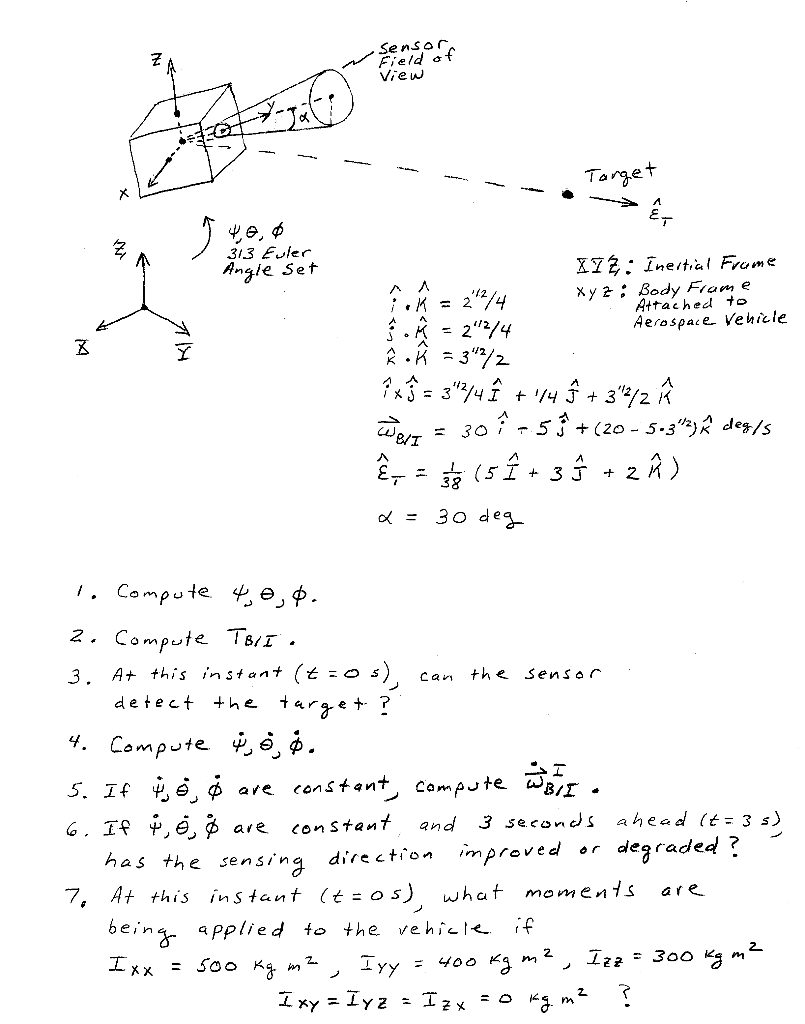 Sensor
Field of
View
z
y
α
x
Target
ε̂_T
ψ, θ, φ
313 Euler
Angle Set
Z
X
Y
XYZ: Inertial Frame
xyz: Body Frame
Attached to
Aerospace Vehicle
î · K̂ = 2^1/2/4
ĵ · K̂ = 2^1/2/4
k̂ · K̂ = 3^1/2/2
î × ĵ = 3^1/2/4 Î + 1/4 Ĵ + 3^1/2/2 K̂
ω⃗_B/I = 30 î - 5 ĵ + (20 - 5·3^1/2) k̂ deg/s
ε̂_T = 1/38 (5 Î + 3 Ĵ + 2 K̂)
α = 30 deg
1. Compute ψ, θ, φ.
2. Compute T_B/I.
3. At this instant (t = 0 s), can the sensor
detect the target?
4. Compute ψ̇, θ̇, φ̇.
5. If ψ̇, θ̇, φ̇ are constant, compute ω⃗̇_B/I^I.
6. If ψ̇, θ̇, φ̇ are constant and 3 seconds ahead (t = 3 s),
has the sensing direction improved or degraded?
7. At this instant (t = 0 s), what moments are
being applied to the vehicle if
I_xx = 500 kg m², I_yy = 400 kg m², I_zz = 300 kg m²
I_xy = I_yz = I_zx = 0 kg m² ?